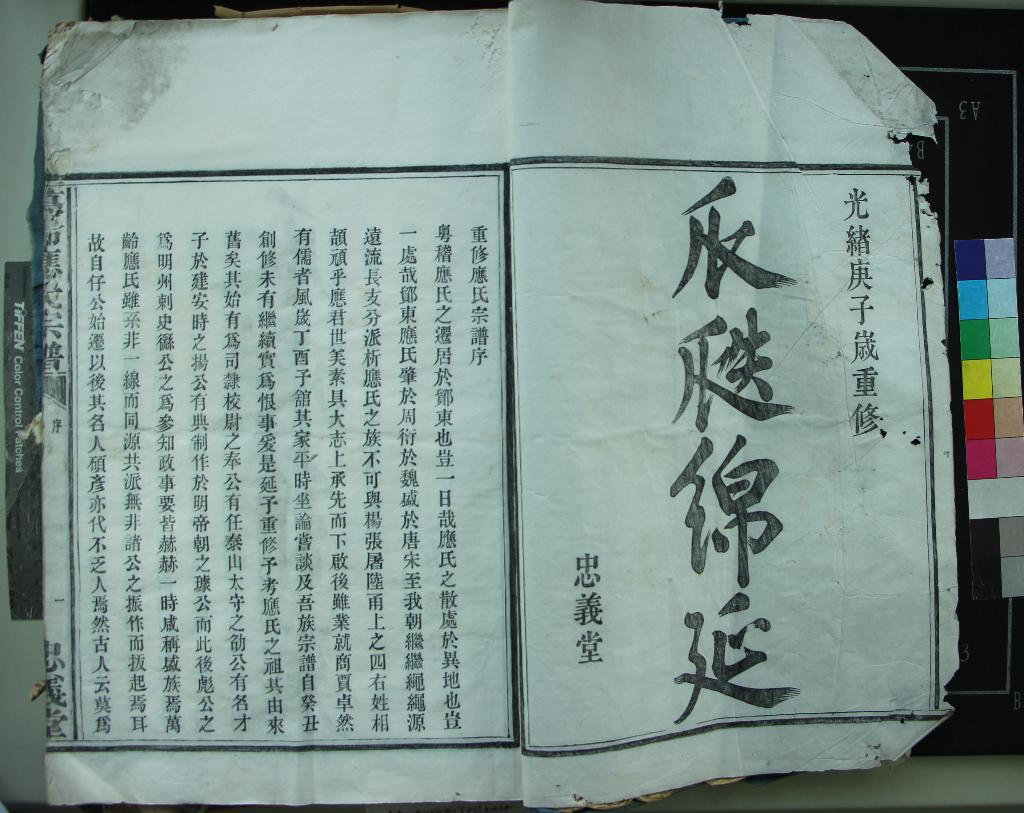 光緒庚子歲重修
瓜瓞綿延
忠義堂
重修應氏宗譜序
粵稽應氏之遷居於鄮東也豈一日哉應氏之散處於異地也豈
一處哉鄮東應氏肇於周衍於魏盛於唐宋至我朝繼繼繩繩源
遠流長支分派析應氏之族不可與楊張屠陸甬上之四右姓相
頡頏乎應君世美素具大志上承先而下啟後雖業就商賈卓然
有儒者風歲丁酉予舘其家平時坐論嘗談及吾族宗譜自癸丑
創修未有繼續實爲恨事爰是延予重修予考應氏之祖其由來
舊矣其始有爲司隸校尉之奉公有任泰山太守之劭公有名才
子於建安時之揚公有典制作於明帝朝之璩公而此後彪公之
爲明州刺史繇公之爲參知政事要皆赫赫一時咸稱盛族焉萬
齡應氏雖系非一線而同源共派無非諸公之振作而拔起焉耳
故自仔公始遷以後其名人碩彥亦代不乏人焉然古人云莫爲
萬齡應氏宗譜
序
一
忠義堂
TIFFEN Color Control Patches
A3
B
B
3